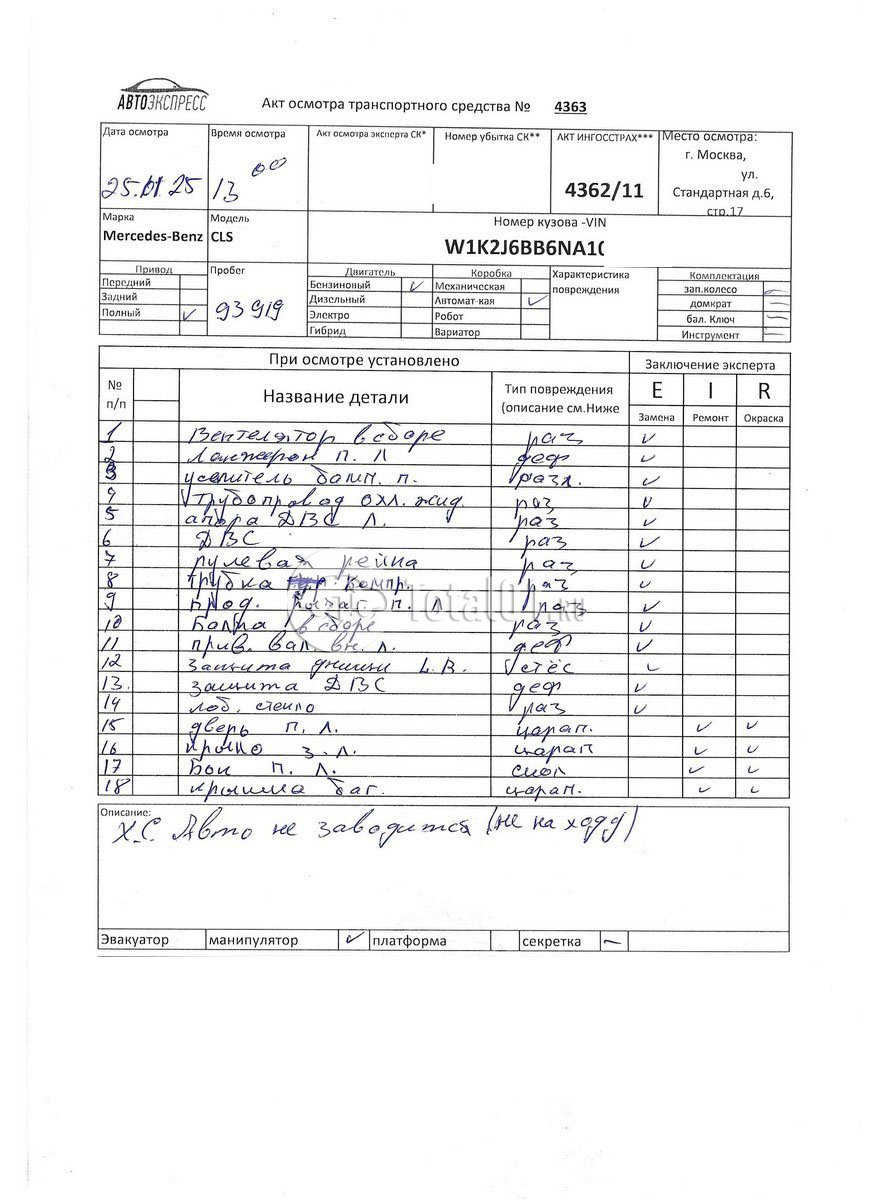 АВТОЭКСПРЕСС
Акт осмотра транспортного средства № 4363
Дата осмотра Время осмотра Акт осмотра эксперта СК* Номер убытка СК** АКТ ИНГОССТРАХ*** Место осмотра:
г. Москва,
ул.
25.01.25 13 00 4362/11 Стандартная д.6,
стр.17
Марка Модель Номер кузова -VIN
Mercedes-Benz CLS W1K2J6BB6NA1
Привод Пробег Двигатель Коробка Характеристика Комплектация
Передний Бензиновый ✓ Механическая повреждения зап.колесо —
Задний Дизельный Автомат-кая ✓ домкрат —
Полный ✓ 93 919 Электро Робот бал. Ключ —
Гибрид Вариатор Инструмент —
При осмотре установлено Заключение эксперта
№ Название детали Тип повреждения E I R
п/п (описание см.Ниже Замена Ремонт Окраска
1 Вентелятор в сборе раз ✓
2 Лонжерон п. л деф ✓
3 усилитель бамп. п. разл. ✓
4 Трубопровод охл. жид. раз ✓
5 опора ДВС Л. раз ✓
6 ДВС раз ✓
7 рулевая рейка раз ✓
8 трубка компр. раз ✓
9 прод. рычаг п. Л раз ✓
10 Балка в сборе раз ✓
11 прив. вал вн. л. деф ✓
12 Защита днищи L.B. стёс ✓
13. защита ДВС деф ✓
14 лоб. стекло раз ✓
15 дверь п. л. царап. ✓ ✓
16 Крыло з. л. царап ✓ ✓
17 Бок п. Л. скол ✓ ✓
18 крышка баг. царап. ✓ ✓
Total01.RU
Описание:
Х.С. Авто не заводится (не на ходу)
Эвакуатор манипулятор ✓ платформа секретка —